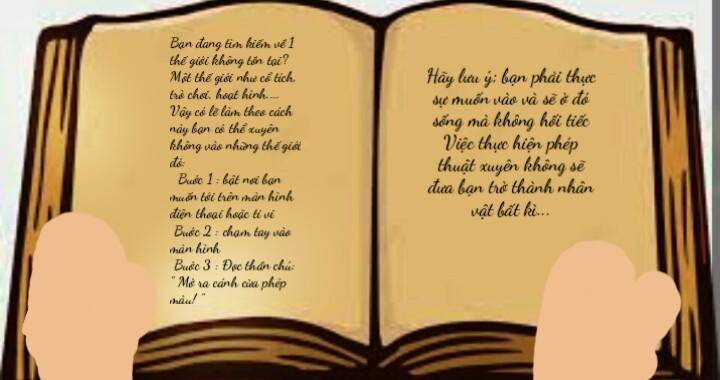 Bạn đang tìm kiếm về 1
thế giới không tồn tại?
Một thế giới như cổ tích,
trò chơi, hoạt hình....
Vậy có lẽ làm theo cách
này bạn có thể xuyên
không vào những thế giới
đó:
Bước 1 : bật nơi bạn
muốn tới trên màn hình
điện thoại hoặc ti vi
Bước 2 : chạm tay vào
màn hình
Bước 3 : Đọc thần chú:
" Mở ra cánh cửa phép
màu! "
Hãy lưu ý; bạn phải thực
sự muốn vào và sẽ ở đó
sống mà không hối tiếc
Việc thực hiện phép
thuật xuyên không sẽ
đưa bạn trở thành nhân
vật bất kì...